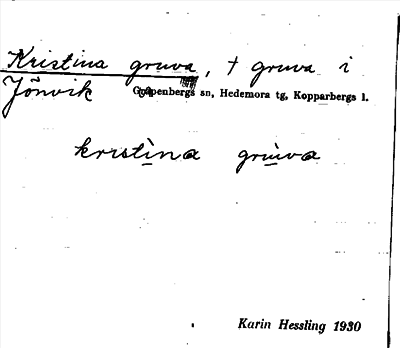 Kristina gruva, † gruva i
Jönvik Garpenbergs sn, Hedemora tg, Kopparbergs l.
kristìna grùva
Karin Hessling 1930